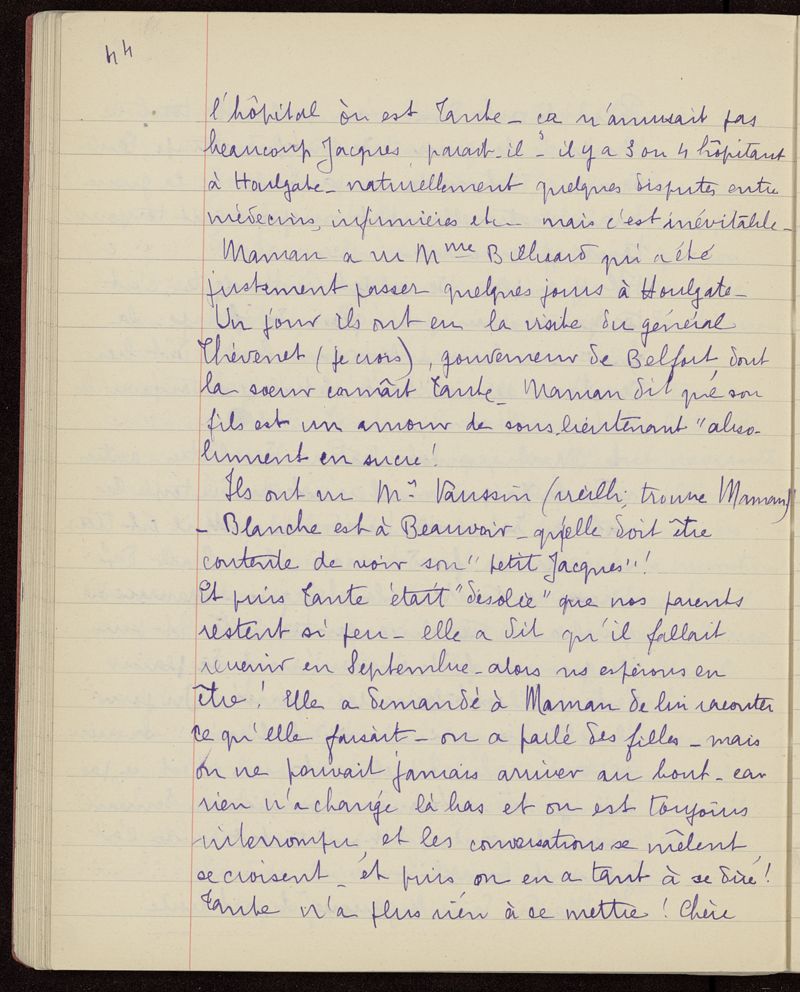 44
l'hôpital òu est Tante - ça n'amusait pas
beaucoup Jacques, parait-il - il y a 3 ou 4 hôpitaux
à Houlgate - naturellement quelques disputes entre
médecins, infirmières etc - mais c'est inévitable -
Maman a vu Mme Billiard qui a été
justement passer quelques jours à Houlgate -
Un jour ils ont eu la visite du général
Thévenet (je crois), gouverneur de Belfort, dont
la soeur connaît Tante - Maman dit que son
fils est un amour de sous-lieutenant "abso-
lument en sucre!
Ils ont vu Mr Vaussin (vieilli, trouve Maman)
- Blanche est à Beauvoir - qu'elle doit être
contente de voir son "petit Jacques"!
Et puis Tante était "désolée" que nos parents
restent si peu - elle a dit qu'il fallait
revenir en Septembre - alors ns espérons en
être! Elle a demandé à Maman de lui raconter
ce qu'elle faisait - on a parlé des filles - mais
on ne pouvait jamais arriver au bout - car
rien n'a changé là bas et on est toujours
interrompu, et les conversations se mêlent,
se croisent - et puis on en a tant à se dire!
Tante n'a plus rien à se mettre! Chère